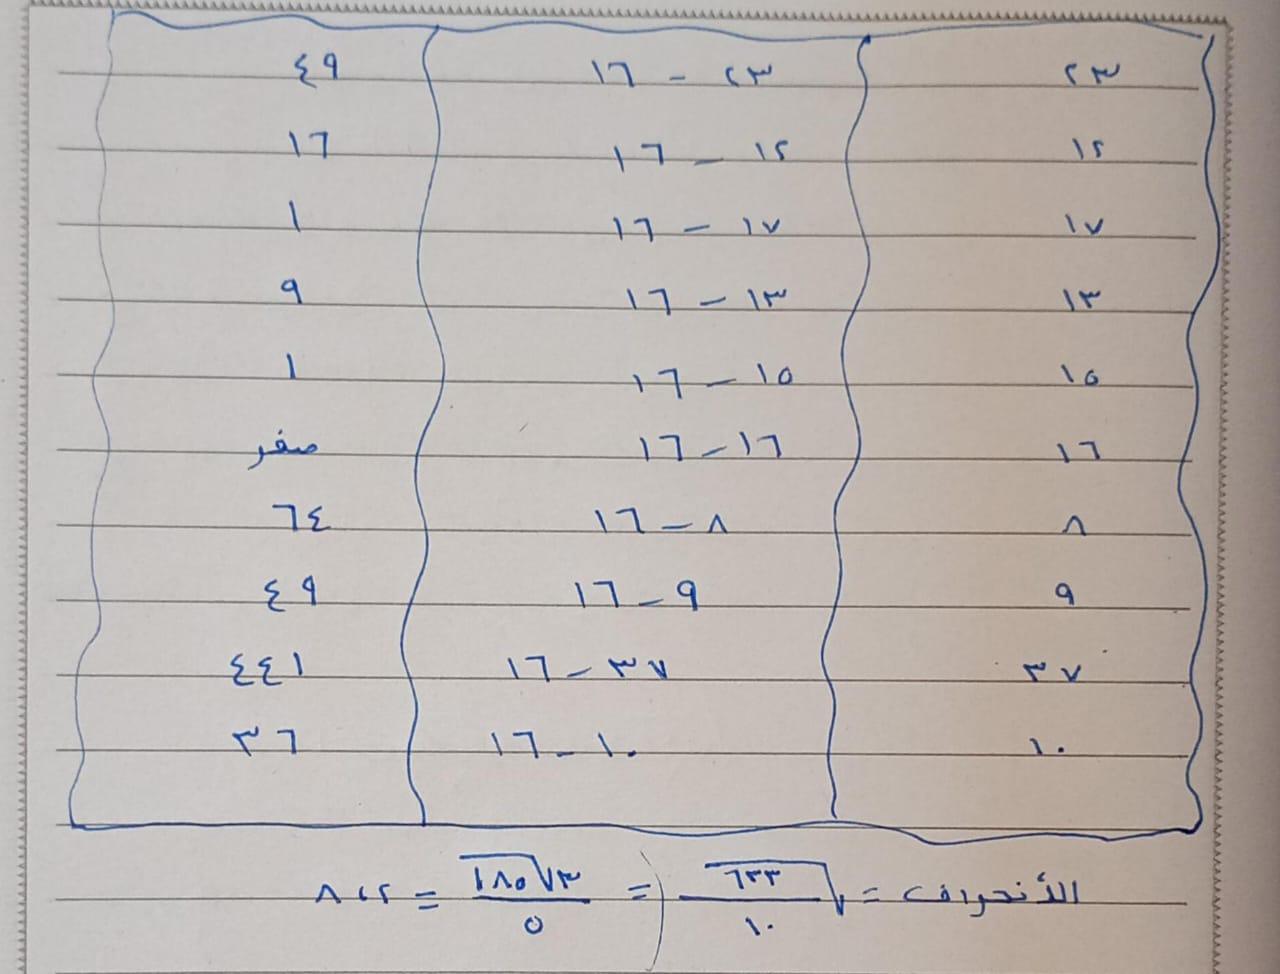 ٢٣ ٢٣ - ١٦ ٤٩
١٢ ١٢ - ١٦ ١٦
١٧ ١٧ - ١٦ ١
١٣ ١٣ - ١٦ ٩
١٥ ١٥ - ١٦ ١
١٦ ١٦ - ١٦ صفر
٨ ٨ - ١٦ ٦٤
٩ ٩ - ١٦ ٤٩
٣٧ ٣٧ - ١٦ ٤٤١
١٠ ١٠ - ١٦ ٣٦
الأنحراف = √٦٣٣/١٠ = ٣√١٨٥/٥ = ٨،٢